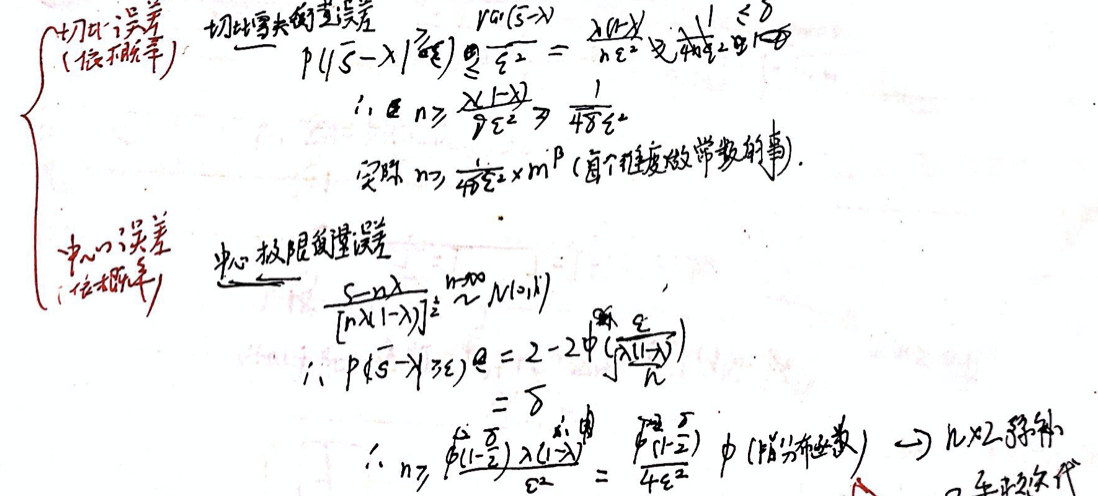 切比误差
(依概率)
切比雪夫衡量误差
P(|S̄-λ|≥ε) ≤ Var(S̄-λ)/ε² = λ(1-λ)/nε² ≤ 1/4nε² ≤ δ
∴ n ≥ λ(1-λ)/δε² ≥ 1/4δε²
实际 n ≥ 1/4δε² × m^β (首个维度做常数的事).
中心误差
(依概率)
中心极限衡量误差
S-nλ/[nλ(1-λ)]^½ n→∞ ~ N(0,1)
∴ P(|S̄-λ|≥ε) = 2-2Φ(ε/√(λ(1-λ)/n))
= δ
∴ n ≥ Φ(1-δ/2)λ(1-λ)/ε² = Φ(1-δ/2)/4ε² Φ(分布函数) → n×2